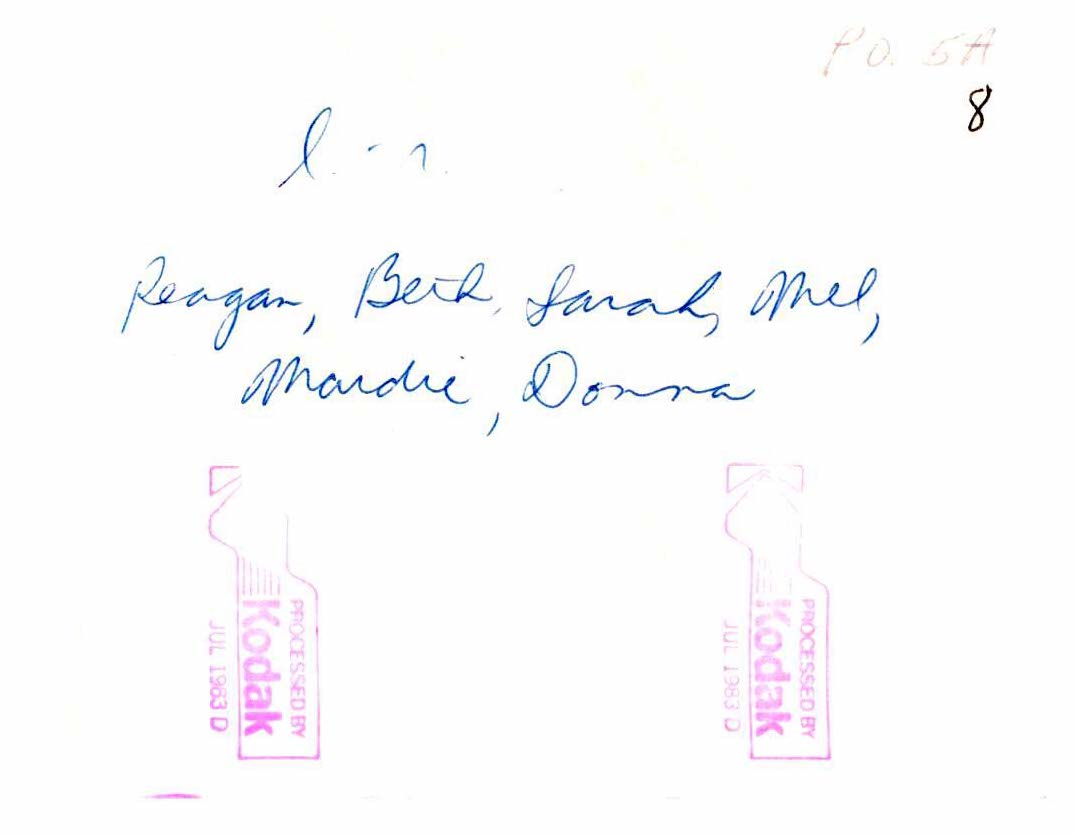 PO. 5A
8
l. - r.
Reagan, Beth, Sarah, Mel,
Mardie, Donna
PROCESSED BY
Kodak
JUL 1983 D
PROCESSED BY
Kodak
JUL 1983 D